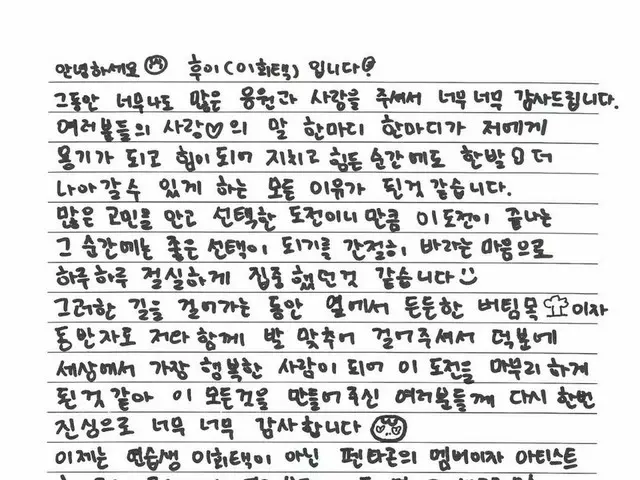 안녕하세요 후이(이회택) 입니다
그동안 너무나도 많은 응원과 사랑을 주셔서 너무 너무 감사드립니다.
여러분들의 사랑♡의 말 한마디 한마디가 저에게
용기가 되고 힘이 되어 지치고 힘든 순간에도 한발 더
나아갈 수 있게 하는 모든 이유가 된것 같습니다.
많은 고민을 안고 선택한 도전이니 만큼 이 도전이 끝나는
그 순간에는 좋은 선택이 되기를 간절히 바라는 마음으로
하루하루 절실하게 집중했던것 같습니다
그러한 길을 걸어가는 동안 옆에서 든든한 버팀목 이자
동반자로 저와 함께 발 맞추어 걸어주셔서 덕분에
세상에서 가장 행복한 사람이 되어 이 도전을 마무리 하게
된것 같아 이 모든것을 만들어주신 여러분들께 다시 한번
진심으로 너무 너무 감사합니다
이제는 연습생 이회택이 아닌 펜타곤의 멤버이자 아티스트